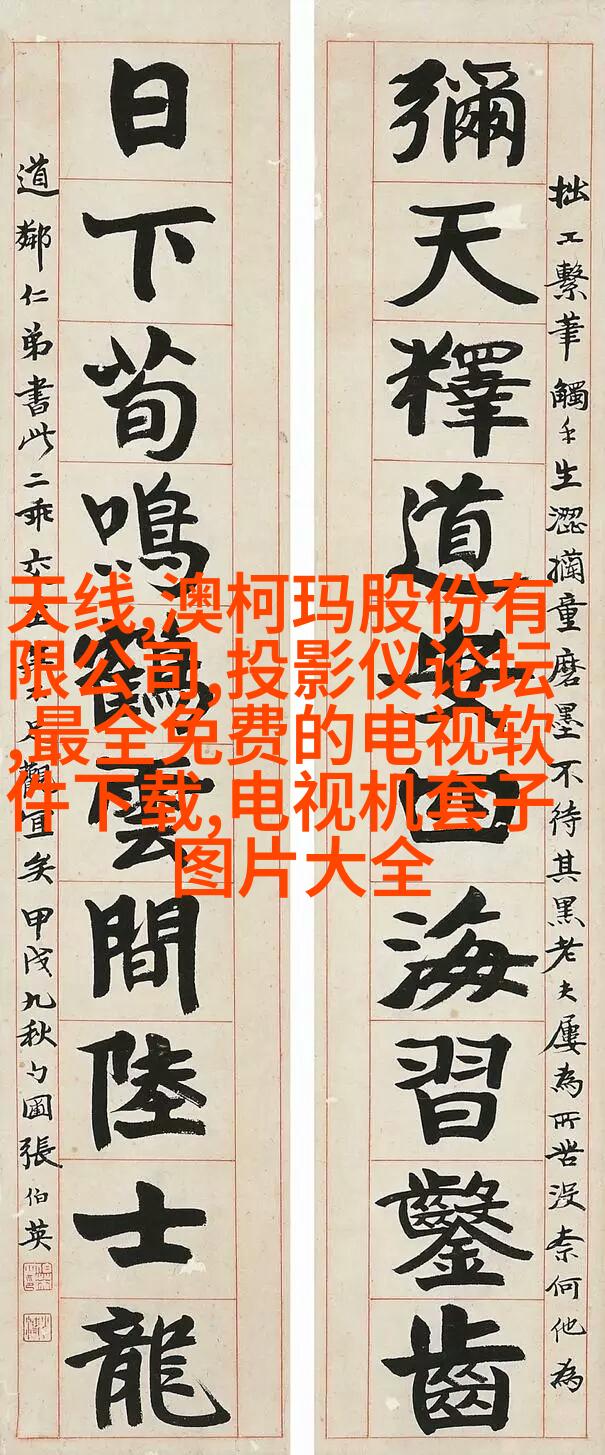 拙工繫筆觸手生澀童磨墨不待其黑老夫屢為所苦沒柰何他為
彌天釋道安四海習鑿齒
日下荀鳴鶴雲間陸士龍
道鄰仁弟書此二乖交觀宜矣甲戌九秋勺圃張伯英
天线,澳柯玛股份有
限公司,投影仪论坛
,最全免费的电视软
件下载,电视机套子
图片大全